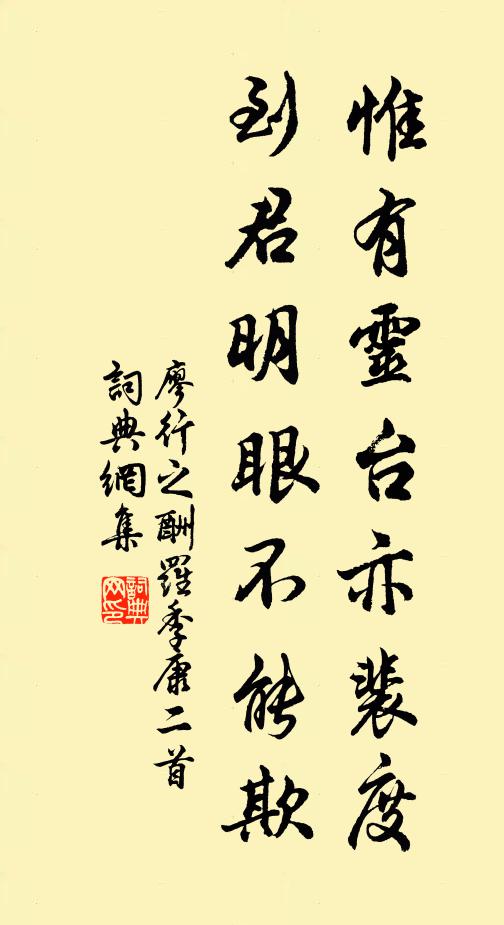 惟有靈台亦裴度
到君明眼不能欺
廖行之酬羅季康二首
詞典網集
詞典網印